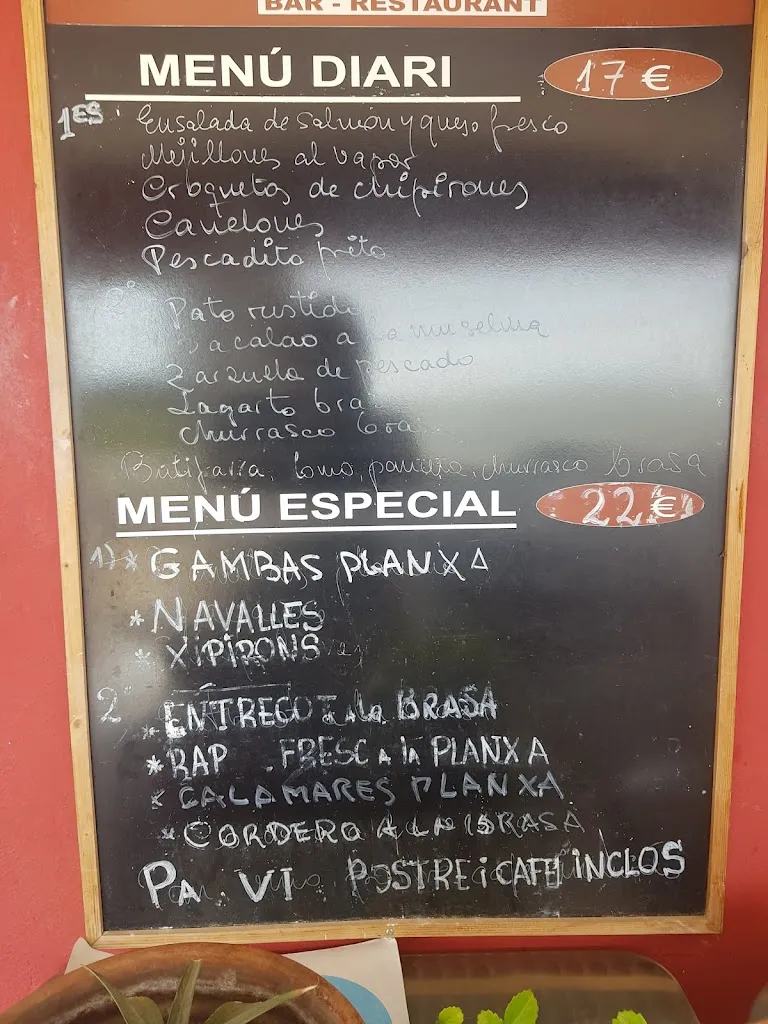 BAR - RESTAURANT
MENÚ DIARI 17 €
1ES Ensalada de salmón y queso fresco
Mejillones al vapor
Croquetas de chipirones
Canelones
Pescadito frito
2º
Pato rustido
acalao a la muselina
Zarzuela de pescado
Lagarto bra
churrasco bra
Butifarra, lomo, panceta, churrasco brasa
MENÚ ESPECIAL 22 €
1) * GAMBAS PLANXA
* NAVALLES
* XIPIRONS
2º
* ENTRECOT a la BRASA
* RAP FRESC A la PLANXA
* CALAMARES PLANXA
* CORDERO A LA BRASA
PA. VI POSTRE i CAFE INCLOS